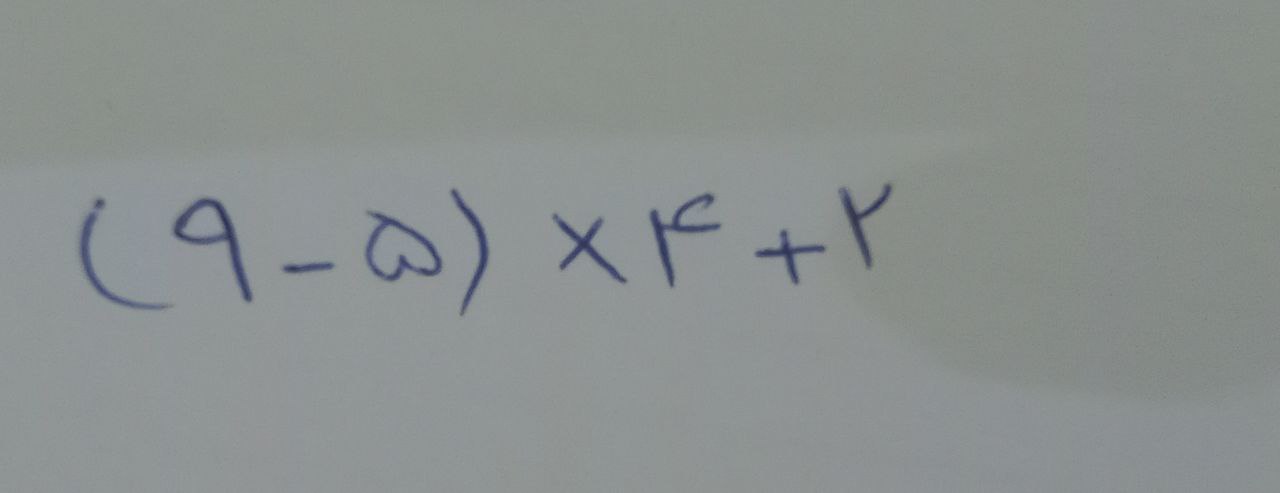 (۹-۵)×۴+۲